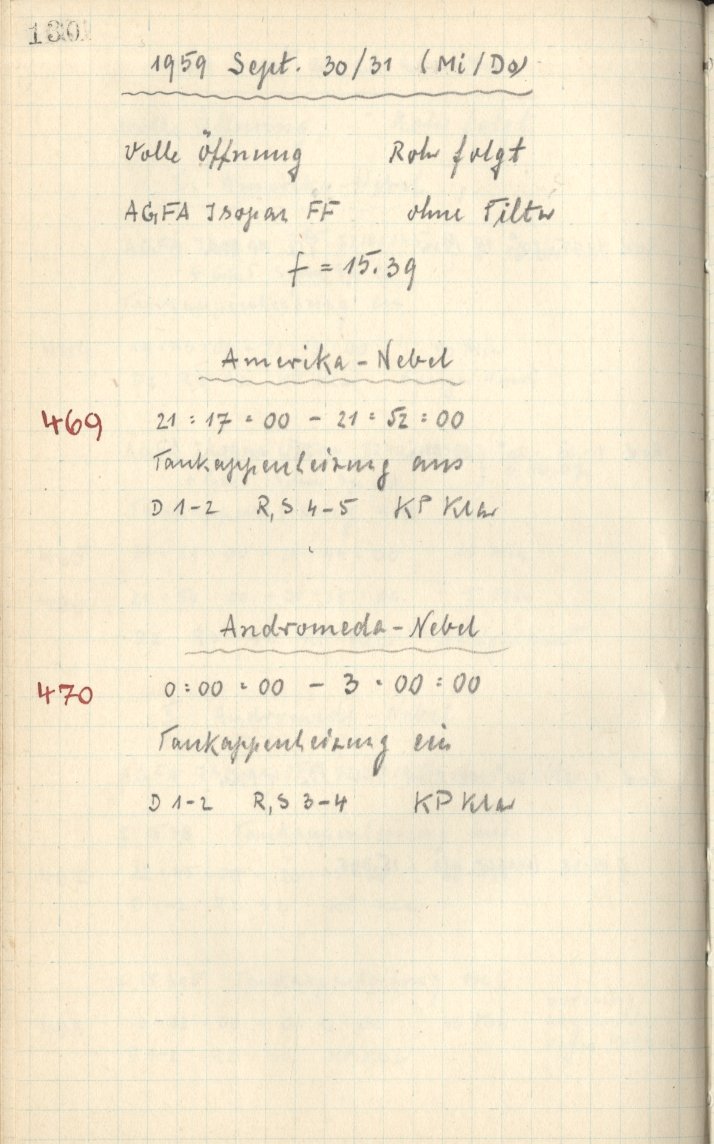 180
1959 Sept. 30/31 (Mi/Do)
Volle Öffnung Rohr folgt
AGFA Isopan FF ohne Filter
f = 15.39
Amerika-Nebel
469 21:17:00 - 21:52:00
Taukappenheizung aus
D 1-2 R,S 4-5 KP Klar
Andromeda-Nebel
470 0:00:00 - 3:00:00
Taukappenheizung ein
D 1-2 R,S 3-4 KP Klar